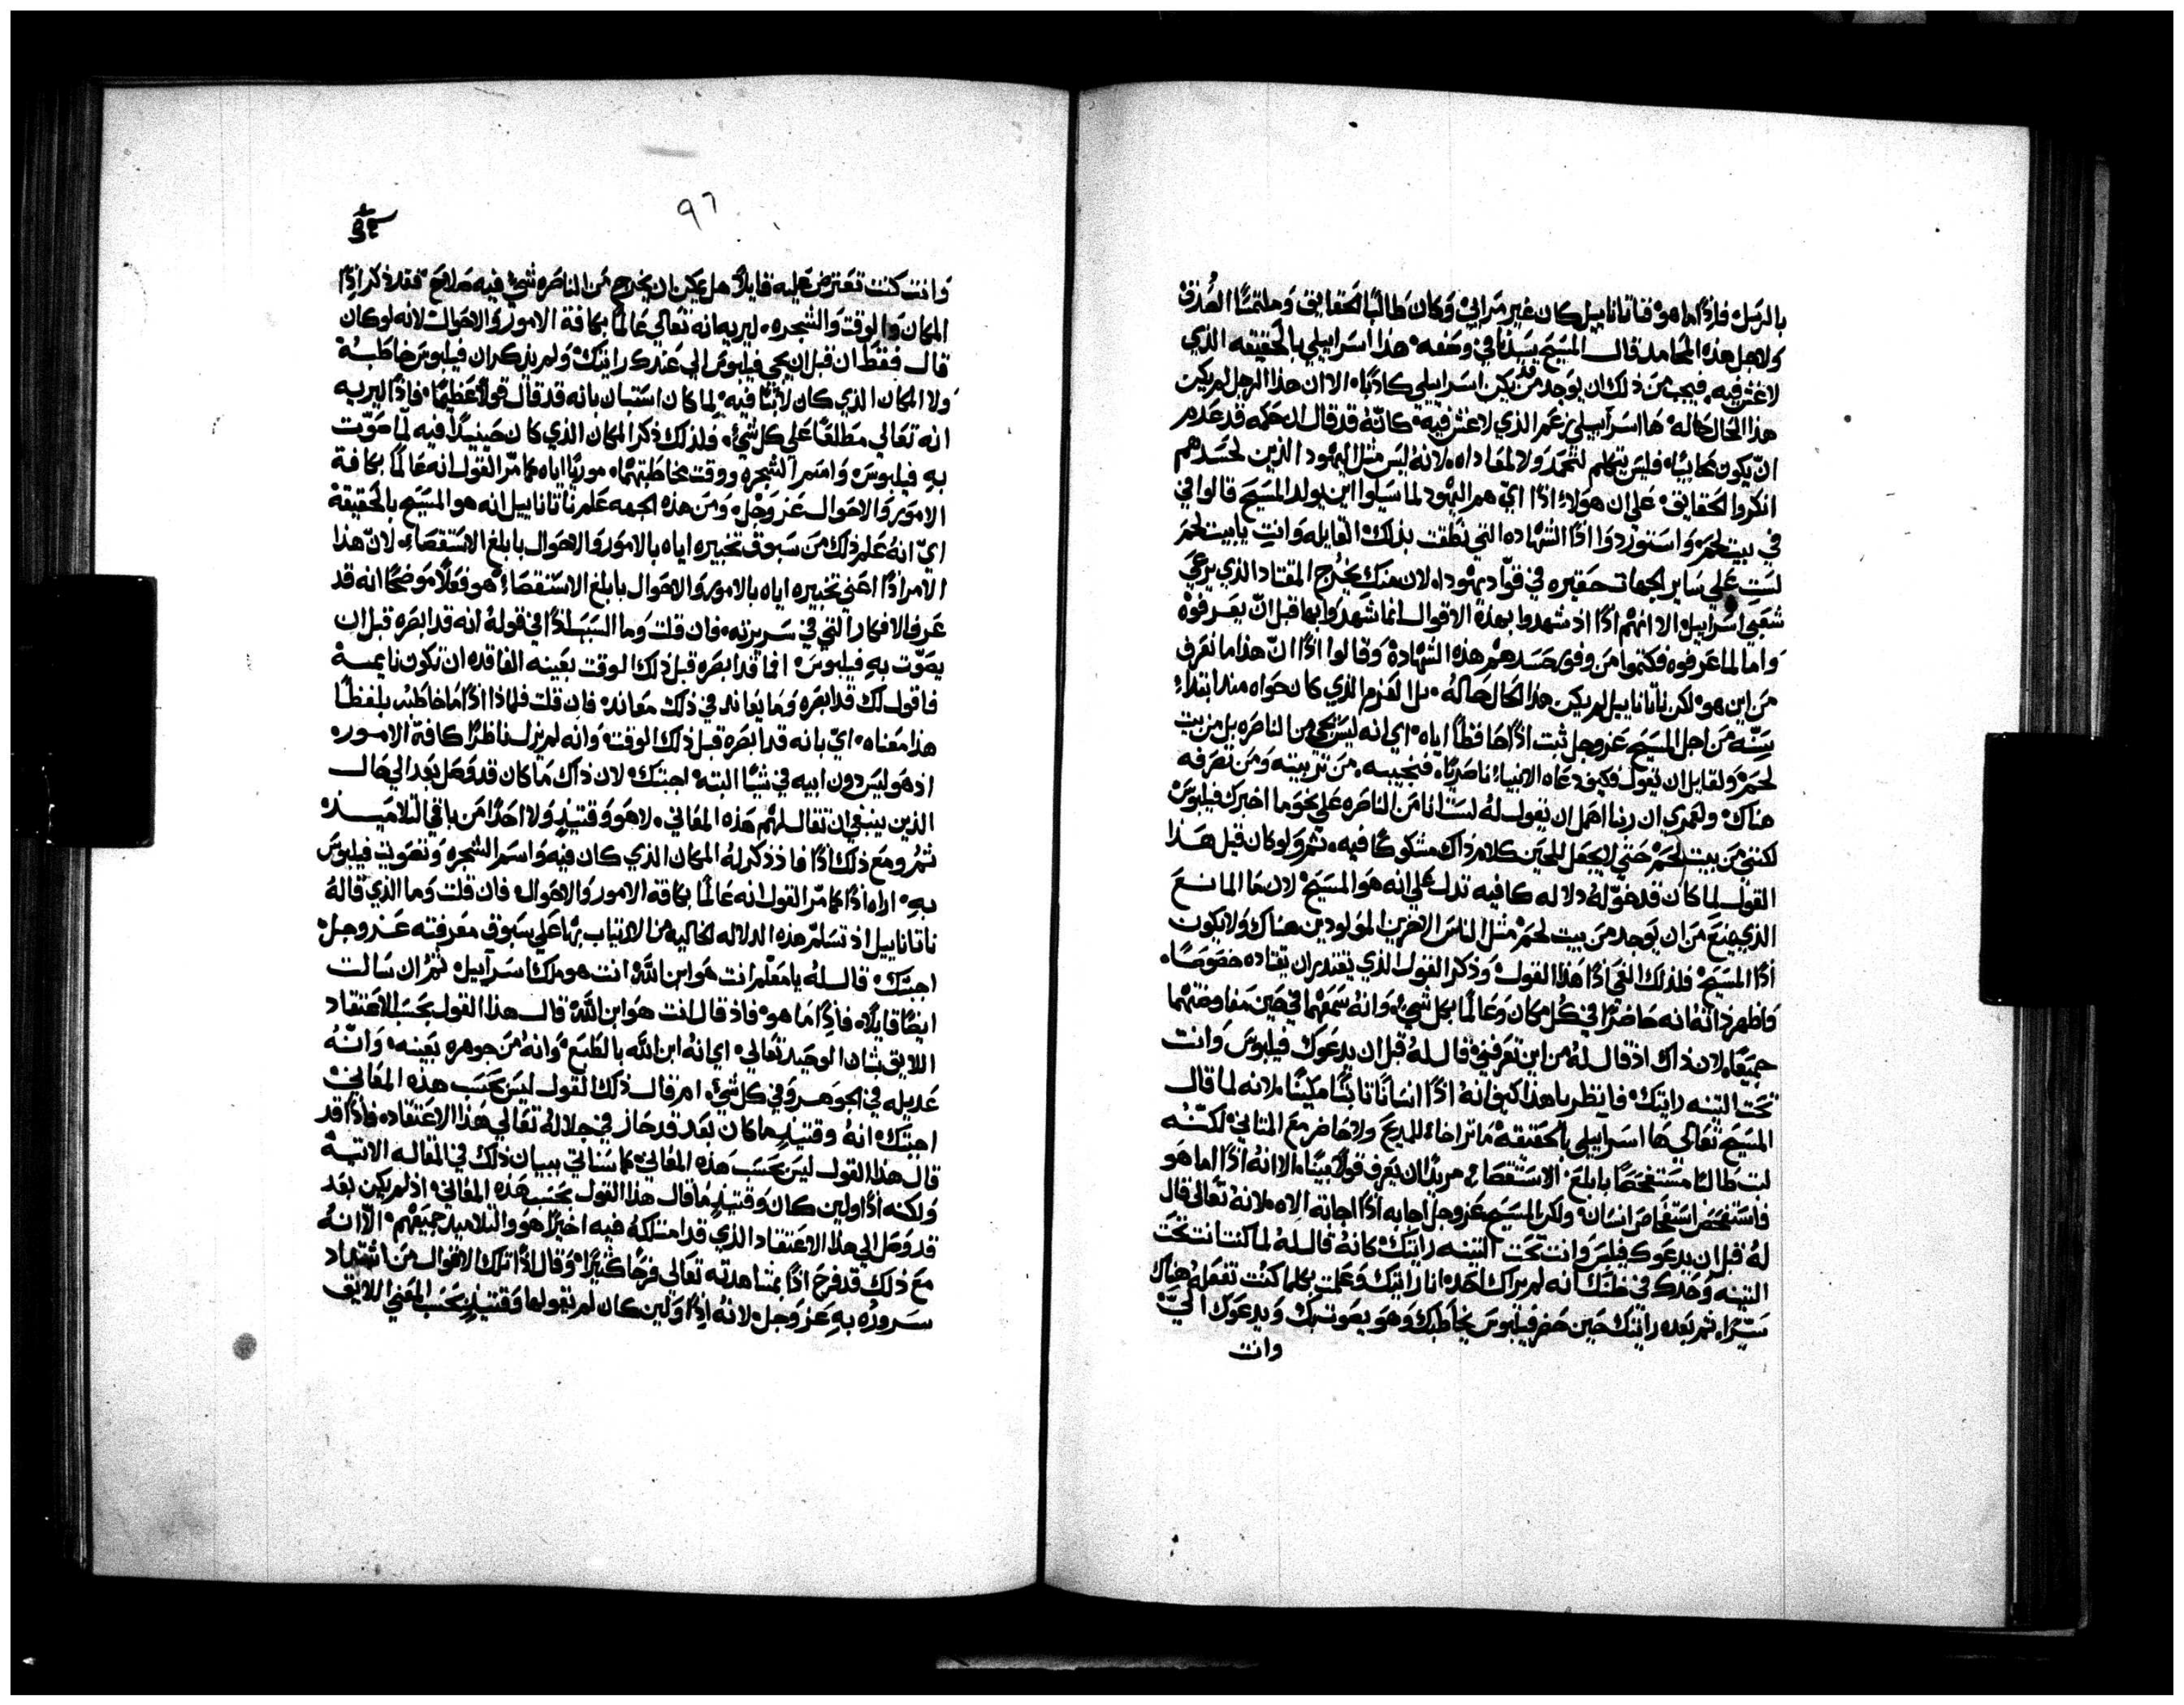 بالرجل فاذًا ما هو فناتانابيل كان غير مرابي وكان طالبًا الحقايق وملتمسًا الصدق
ولاجل هذه المحامد قال المسيح سيدنا في وصفه هذا اسراييلي بالحقيقه الذي
لا غش فيه فيجب من ذلك ان يوجد من يكن اسراييلي كاذبًا الا ان هذا الرجل لم يكن
هذا الحال حاله ها اسراييلي زعم الذي لا غش فيه كانه قد قال ان حكمه قد عدم
ان يكون محابيًا فليس يتكلم لتحمد ولا لمعاداه لانه ليس مثل اليهود الذين لحسدهم
انكروا الحقايق علي ان هولاء اذًا اي هم اليهود لما سيلوا اين يولد المسيح قالوا في
في بيت لحم واستوردوا اذًا الشهاده التي نطقت بذلك القايله وانتِ يا بيت لحم
لستِ علي ساير الجهات حقيره في قواد يهوداه لان منكِ يخرج المقتاد الذي يرعي
شعبي اسراييل الا انهم اذًا اذ شهدوا بهذة الاقوال انما شهدوا بها قبل ان يعرفوه
واما لما عرفوه فكتموا من وفور حسدهم هذه الشهادة وقالوا اذًا ان هذا ما نعرف
من اين هو لكن ناتانابيل لم يكن هذا الحال حاله بل العزم الذي كان حواه منذ ابتداء
بيته من اجل المسيح عز وجل ثبت اذًا حافظًا اياه اي انه ليس يجي من الناصره بل من بيت
لحم ولقايل ان يقول فكيف دعاه الانبياء ناصريًا فنجيبه من تربيته ومن تصرفه
هناك ولعمري ان ربنا اهمل ان يقول له لست انا من الناصره علي نحو ما اخبرك فيلبوس
لكنني من بيت لحم حتي لا يجعل للحين كلام ذاك مشكوكًا فيه ثم ولو كان قبل هذا
القول لما كان قد خوّله دلاله كافيه تدل علي انه هو المسيح لان ما المانع
الذي يمنع من ان يوجد من بيت لحم مثل الناس الاخرين المولودين هناك ولا يكون
اذًا المسيح فلذلك الغي اذًا هذا القول وذكر القول الذي يقتدر ان يقتاده خصوصًا
واظهر ذاته انه حاضرًا في كل مكان وعالمًا بكل شيء وانه سمعهما في حين مفاوضتهما
جميعًا لان ذاك اذ قال له من اين تعرفني قال له قبل ان يدعوك فيلبوس وانت
تحت التينه رايتك فانظر يا هذا كيف انه اذًا انسانًا ثابتًا مكينًا لانه لما قال
المسيح تعالي ها اسراييلي بالحقيقه ما تراخاء للمديح ولا حاضر مع المثاني لكنه
لبث طالبًا مستفحصًا بابلغ الاستقصاء مريدًا ان يعرف قولًا بينًا الا انه اذًا اما هو
فاستفحص استفحاص انسان ولكن المسيح عز وجل اجابه اذًا اجابة الاه لانه تعالي قال
له قبل ان يدعوك فيلبس وانت تحت التينه رايتك كانه قال له لما كنت انت تحت
التينه وحدك في ظنك انه لم يراك احد انا رايتك وعلمت بكلما كنت تفعله هناك
سرًا ثم بعد رايتك حين حضر فيلبوس يخاطبك وهو يصوت بك ويدعوك اليّ
وانت
٩٦
وانت كنت تعترض عليه قايلًا هل يمكن ان يخرج من الناصره شيء فيه صلاح فقد ذكر اذًا
المكان والوقت والشجره ليريه انه تعالي عالمًا بكافة الامور والاحوال لانه لو كان
قال فقط ان قبل ان يجي فيلبوس الي عندك رايتك ولم يذكر ان فيلبوس خاطبه
ولا المكان الذي كان لابثًا فيه لما كان استبان بانه قد قال قولًا عظيمًا فاذًا ليريه
انه تعالي مطلعًا علي كل شيء فلذلك ذكر المكان الذي كان حينيذًا فيه لما صوّت
به فيلبوس واسم الشجره ووقت مخاطبتهما موريًا اياه كما مرّ القول انه عالمًا بكافة
الامور والاحوال عز وجل ومن هذه الجهه علم ناتانابيل انه هو المسيح بالحقيقة
اي انه علم ذلك من سبوق تخبيره اياه بالامور والاحوال بابلغ الاستقصاء لان هذا
الامر اذًا اعني تخبيره اياه بالامور والاحوال بابلغ الاستقصاء هو فعلًا موضحًا انه قد
عرف الافكار التي في سريرته فان قلت وما السبب اذًا في قوله انه قد ابصره قبل ان
يصوّت به فيلبوس انما قد ابصره قبل ذلك الوقت بعينه الفاقده ان تكون نايمة
فاقول لك قد ابصره وما يعاند في ذلك معاند فان قلت فلماذا اذًا ما خاطبه بلفظًا
هذا معناه اي بانه قد ابصره قبل ذلك الوقت وانه لم يزل ناظرًا كافة الامور
اذ هو ليس دون ابيه في شيًا البتة اجبتك لان ذاك ما كان قد وصل بعد الي حال
الذين ينبغي ان تقال لهم هذه المعاني لا هو وقتيذٍ ولا احدًا من باقي التلاميذ
ثم ومع ذلك اذًا فاذ ذكر له المكان الذي كان فيه واسم الشجره وتصويت فيلبوس
به اراه اذًا كما مرّ القول انه عالمًا بكافة الامور والاحوال فان قلت وما الذي قاله
ناتانابيل اذ تسلّم هذه الدلاله الخاليه من الارتياب بها علي سبوق معرفته عز وجل
اجبتك قال له يا معلم انت هو ابن الله انت هو ملك اسراييل ثم ان سالت
ايضًا قايلًا فاذًا ما هو فاذ قال انت هو ابن الله قال هذا القول بحسب الاعتقاد
اللايق بشان الوحيد تعالي اي انه ابن الله بالطبع وانه من جوهره بعينه وانه
عديله في الجوهر وفي كل شيء ام قال ذلك القول ليس بحسب هذه المعاني
اجبتك انه وقتيذٍ ما كان بعد قد حاز في جلاله تعالي هذا الاعتقاد فاذًا قد
قال هذا القول ليس بحسب هذه المعاني كما سناتي ببيان ذلك في المقاله الاتية
ولكنه اذًا ولين كان وقتيذٍ ما قال هذا القول بحسب هذه المعاني اذ لم يكن بعد
قد وصل الي هذا الاعتقاد الذي قد امتلكه فيه اخيرًا هو والتلاميذ جميعهم الا انه
مع ذلك قد فرح اذًا بمشاهدته تعالي فرحًا كثيرًا وقال اذًا تلك الاقوال من اشتداد
سروره به عز وجل لانه اذًا ولين كان لم يقولها وقتيذٍ بحسب المعني اللايق